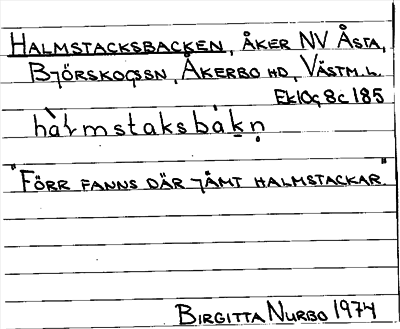 HALMSTACKSBACKEN, ÅKER NV ÅSTA,
BJÖRSKOGSSN, ÅKERBO HD, VÄSTM. L.
Ek10g 8c 185
hàlmstaksbákṇ
"FÖRR FANNS DÄR JÄMT HALMSTACKAR."
BIRGITTA NURBO 1974